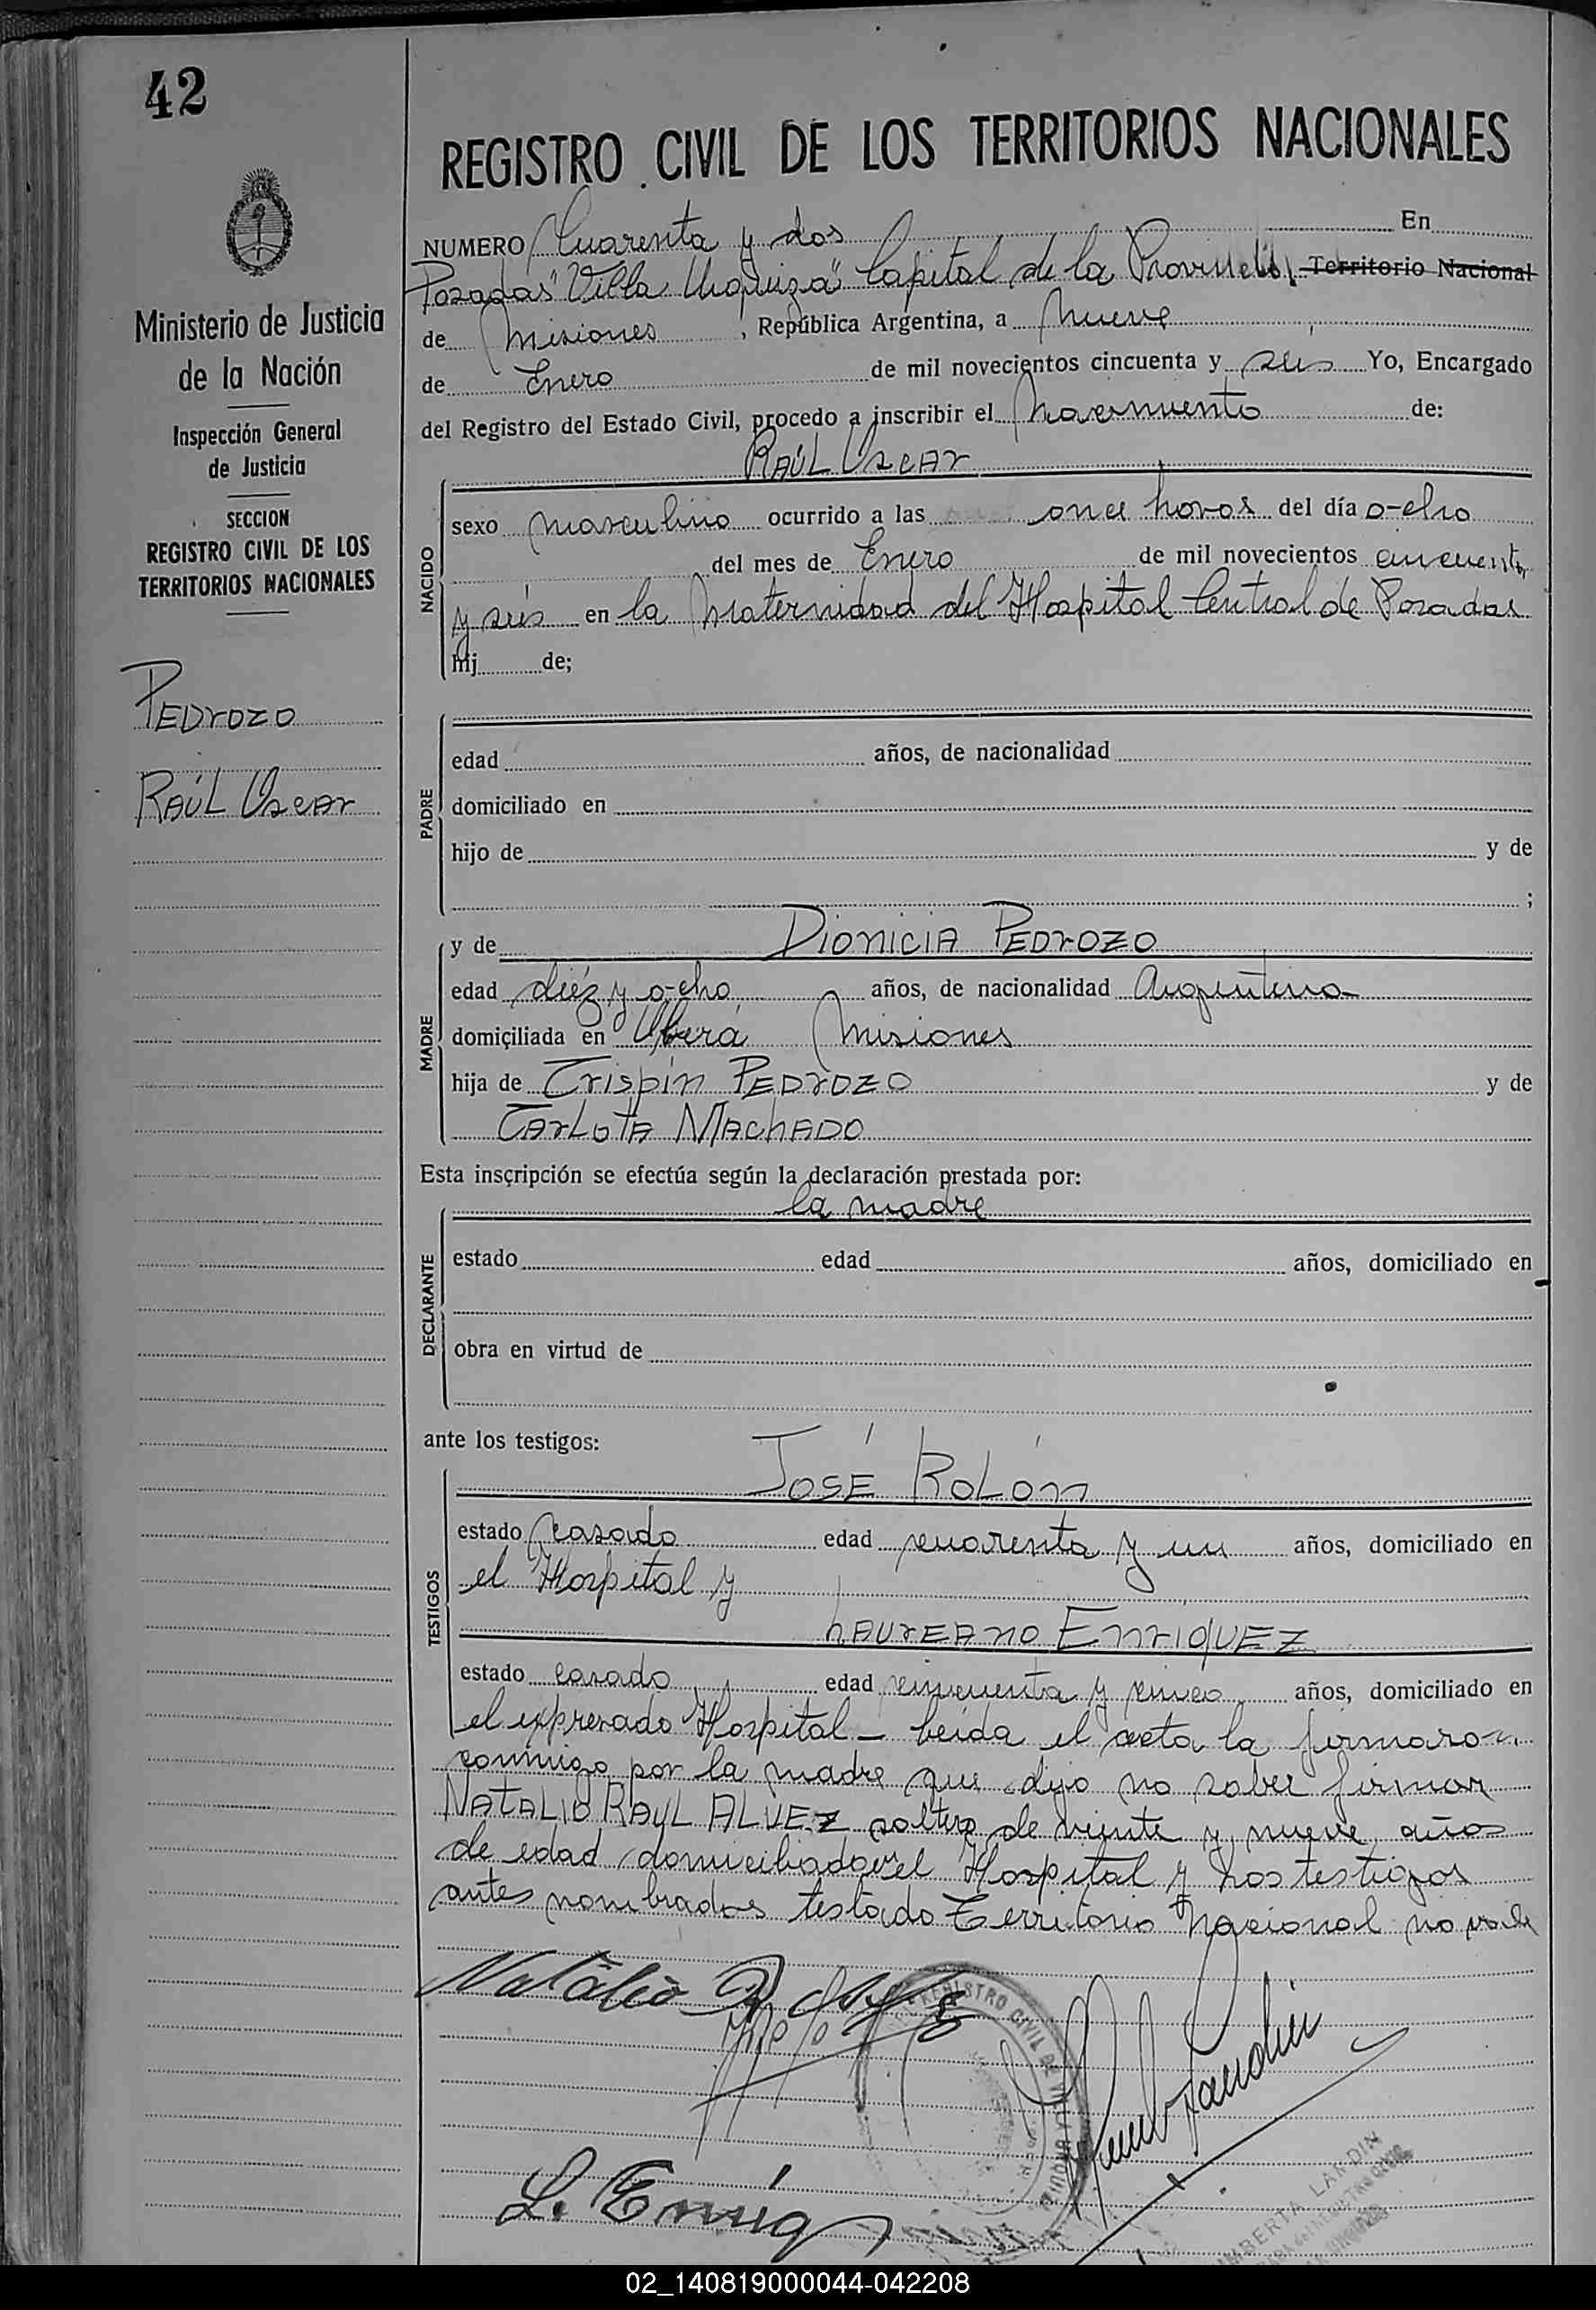 42
REGISTRO CIVIL DE LOS TERRITORIOS NACIONALES
NUMERO Cuarenta y dos En
Posadas "Villa Urquiza" Capital de la Provincia Territorio Nacional
de Misiones, República Argentina, a nueve
de Enero de mil novecientos cincuenta y seis Yo, Encargado
del Registro del Estado Civil, procedo a inscribir el nacimiento de:
RAÚL OSCAR
Ministerio de Justicia
de la Nación
Inspección General
de Justicia
SECCION
REGISTRO CIVIL DE LOS
TERRITORIOS NACIONALES
PEDROZO
RAÚL OSCAR
NACIDO
sexo masculino ocurrido a las once horas del día o-cho
del mes de Enero de mil novecientos cincuenta
y seis en la Maternidad del Hospital Central de Posadas
hij de;
PADRE
edad años, de nacionalidad
domiciliado en
hijo de y de
;
MADRE
y de DIONICIA PEDROZO
edad diéz y o-cho años, de nacionalidad Argentina
domiciliada en Oberá Misiones
hija de Crispín PEDROZO y de
CARLOTA MACHADO
Esta inscripción se efectúa según la declaración prestada por:
la madre
DECLARANTE
estado edad años, domiciliado en
obra en virtud de
ante los testigos:
JOSÉ ROLÓN
TESTIGOS
estado casado edad cuarenta y un años, domiciliado en
el Hospital y
LAUREANO ENRIQUEZ
estado casado edad cincuenta y cinco años, domiciliado en
el expresado Hospital - Leída el acta la firmaron
conmigo por la madre que dijo no saber firmar
NATALIO RAUL ALVEZ soltero de veinte y nueve años
de edad domiciliado en el Hospital y los testigos
antes nombrados testado Territorio Nacional no vale
Natalio R
REGISTRO CIVIL DE
L. Enriq
LANDIN
02_140819000044-042208